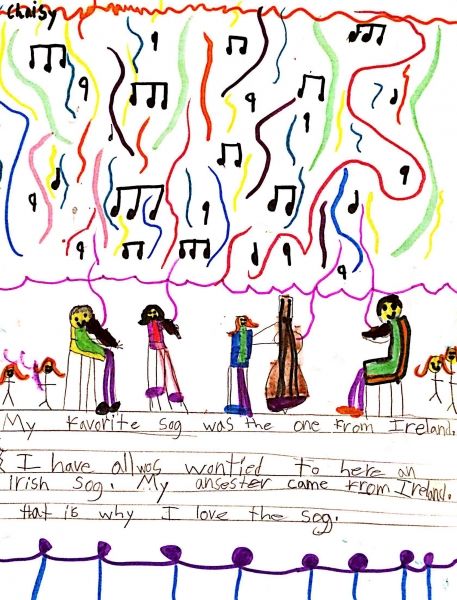 Chrisy
My favorite sog was the one from Ireland.
I have allwos wontied to here an
Irish sog. My ansester came from Ireland.
that is why I love the sog.